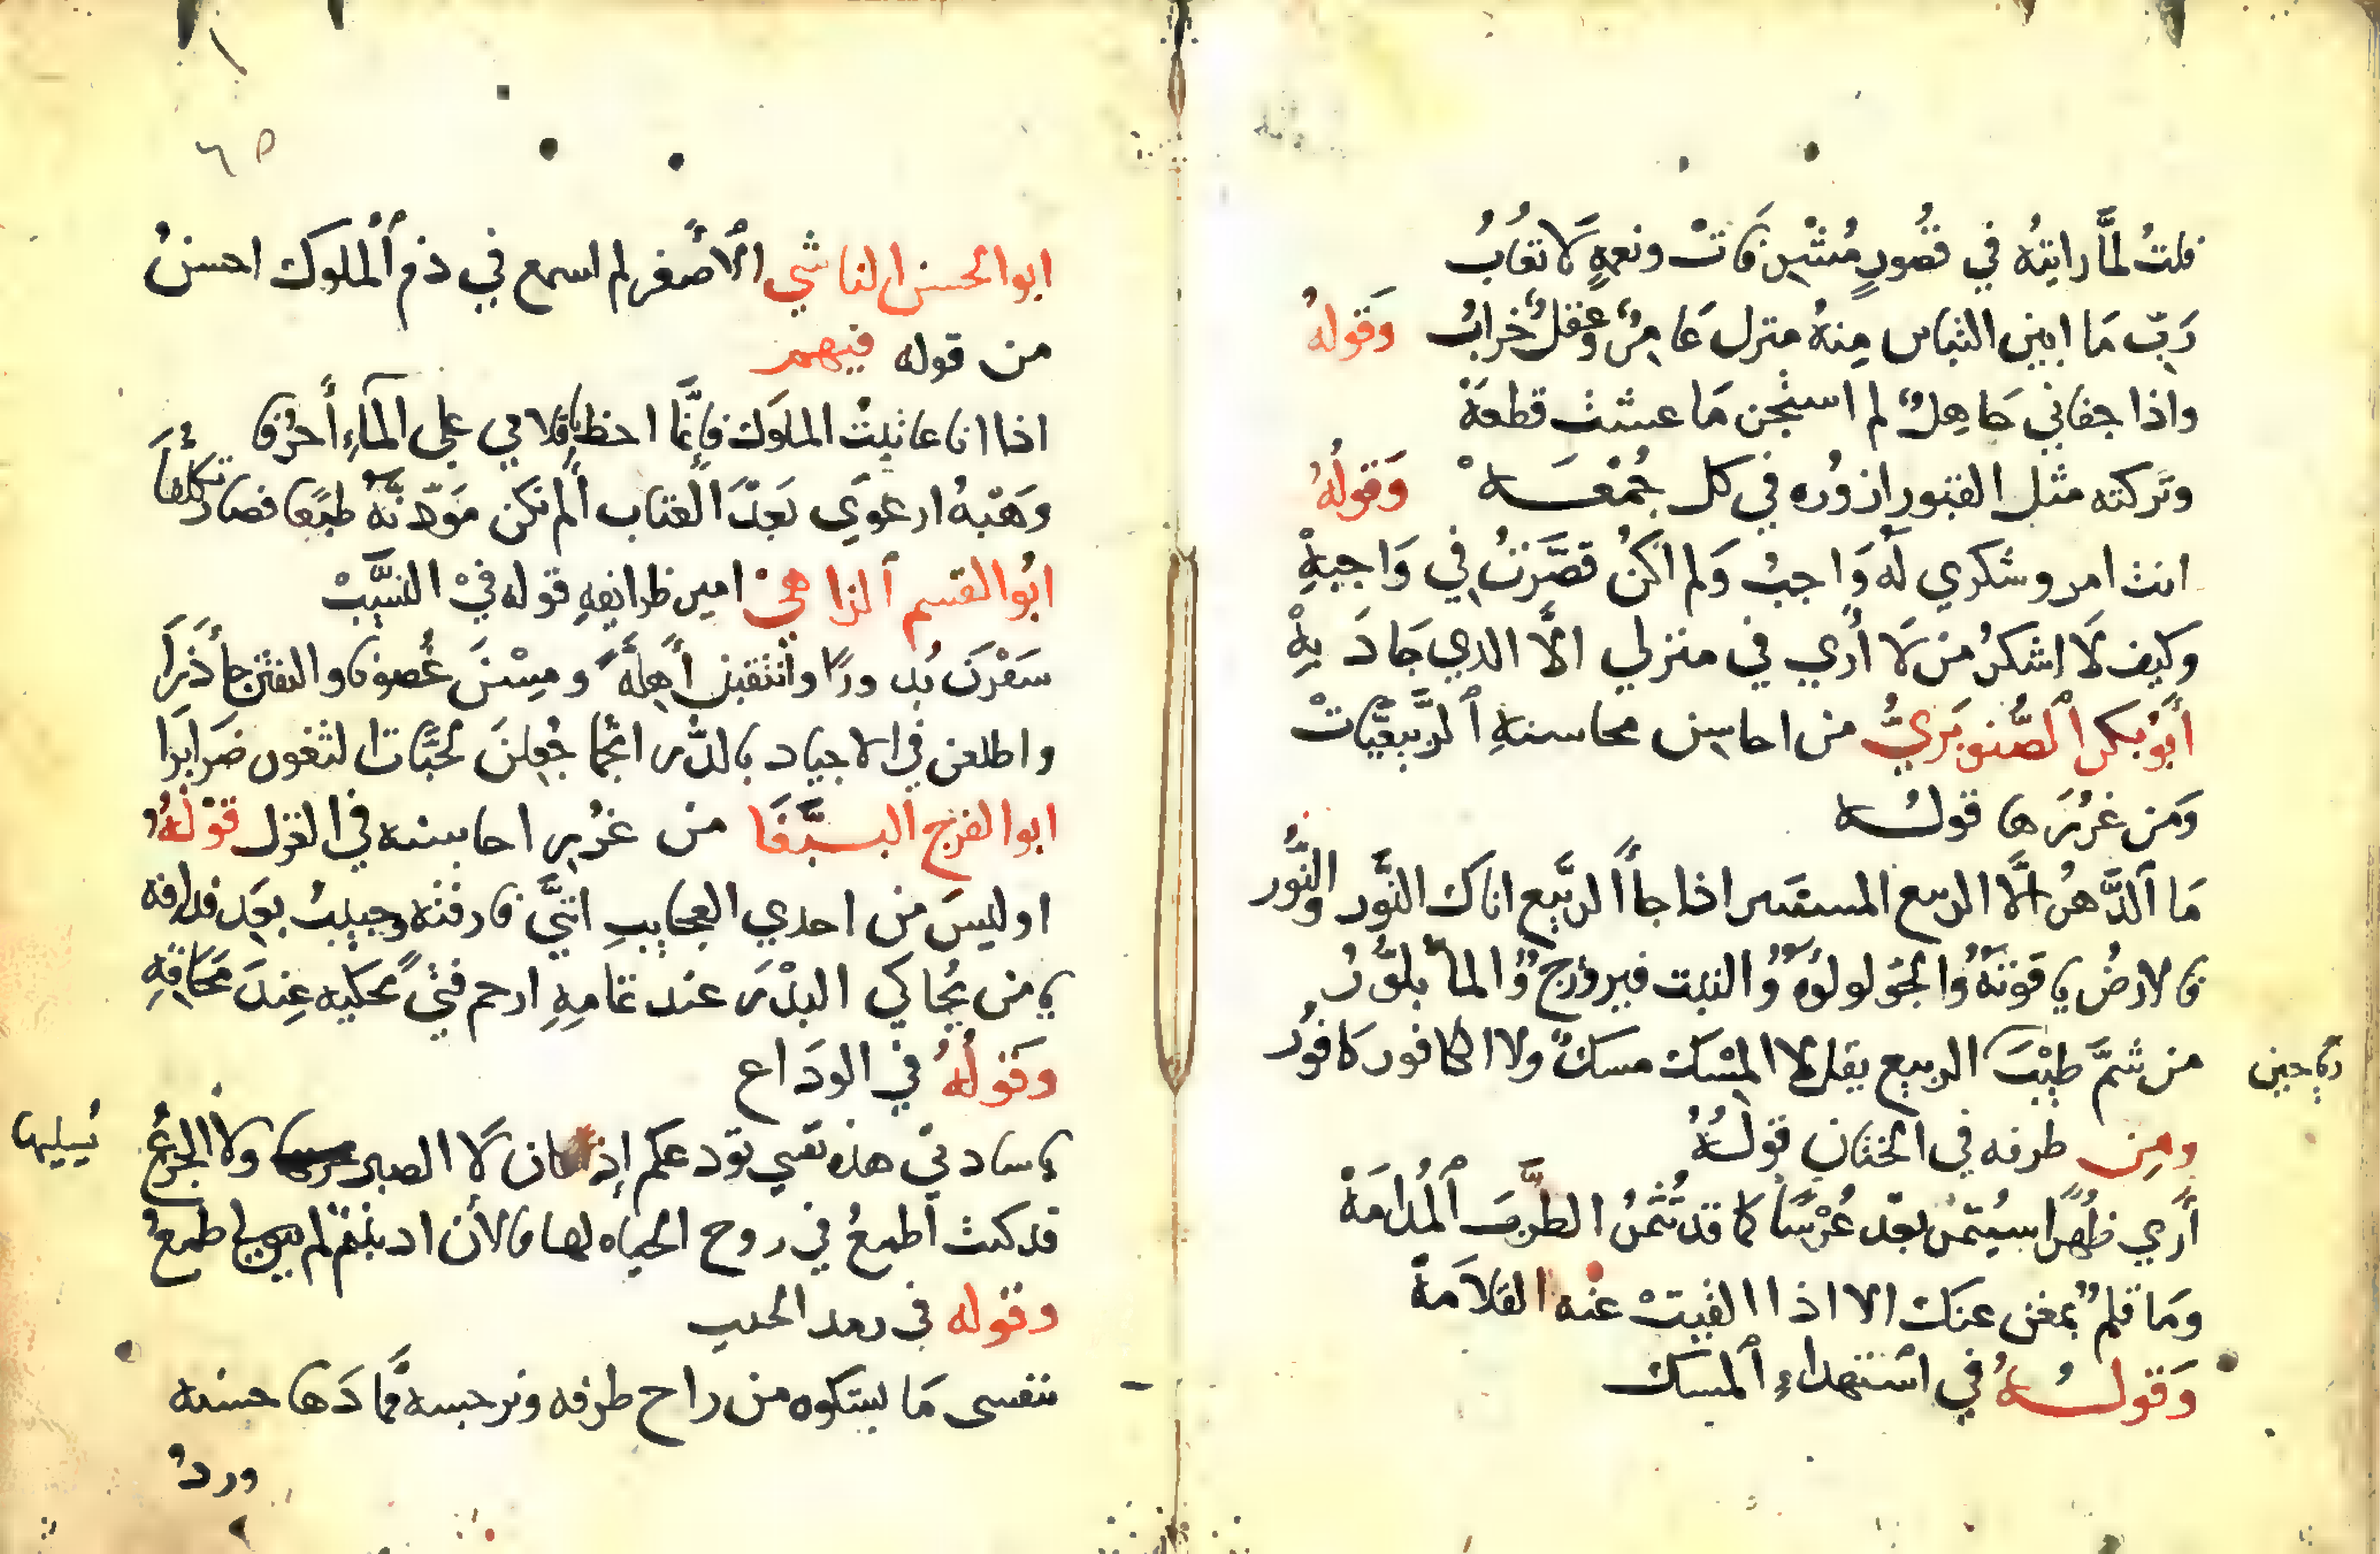 قلتُ لمَّا رايتهُ في قصُورٍ مُشْرِفَاتْ ونعمةٍ لَا تعَابُ
رَبِّ مَا ابين التباس مِنهُ منزل عَامِرٌ وعقلٌ خرابُ وَقولهُ
واذا جفاني جَاهِلٌ لم استجن مَا عشت قطعهْ
وتركته مثل القبور ازوُره في كل جُمْعَــهْ وَقولُهُ
انت امرو شكري لَه وَاجبُ وَلم اكنُ قصَّرتُ في وَاجبهِْ
وكيف لَا اشكرُ من لَا أري في منزلي الَّا الدي جَادَ بهِْ
أبُو بكر الصَّنوبَريُّ من احاسن محاسنهِ الربيعيَّاتْ
وَمن غرُرَها قولُـه
مَا الدَّهرُ الَّا الربيع المستنير اذا جاأ الربَّيع اتاك النَّور والنُّور
فالارضُ ياقوتهٌ وُالجوَّ لولوهٌ وُالنبت فيروزجٌ وُالمأ بلوَّرُ
من شمَّ طِيْبَ الربيع يقل لا المِسْك مسكٌ ولا الكافور كافوُر
رياحين
ومِن طرفه في الختان قولُهُ
أري طُهرًا سيُثمرُ بعْد عُرْسًا كما قد تُثمرُ الطَّربَ المُدامَهْ
وَما قلمٌ بمغن عنك الا اذا القيتْ عنْه القلَامَهْ
وَقولُــهُ في استهداءِ المسك
٦٥
ابوالحسن الناشي الأصغر لم اسمع في ذم الملوك احسنُ
من قوله فيهم
اذا انا عاتبتُ الملوَك فانَّما اخط باقلامي علي المَاءِ أحرُفا
وَهَبْهُ ارعوَي بَعدَ العتاب ألم تكن مَودّتهُ طبَعًا فصارَ تكلّفَا
ابُوالقسم الزاهيْ امير ظرايفهِ قوله فيْ النسَّيبْ
سَفَرْنَ بُدورًا وانتقبن أهِلَّهً ومِسْنَ غُصونا والتفتن جأذرَا
واطلعن في الاجياد بالدُّر انجما جُعِلنَ لحبَّات القلوب ضرَايرا
ابوالفرج الببَّغَا من غرُرِ احاسنه في الغزل قوْلهُ
اوليسَ من احدي العجايبِ انَّنيَ فارقتهُ وحييتُ بعد فراقه
يا من يُحاكي البدْرَ عند تمامِهِ ارحم فتيً يحكيه عِندَ مَحَاقهِ
وَقولُهُ في الودَاع
يا سادتي هذه نفسي تودعكم إذ كان لَا الصبر يسليها ولا الجزعُ
قد كنت أطمعُ في روح الحياه لها فالأن اذ بنتم لم يبق لي طمعُ
وقوله في رمد الحبيب
بنفسي مَا يشكوه من راح طرفه ونرجسه ممَّا دَهَا حسنه
وردُ